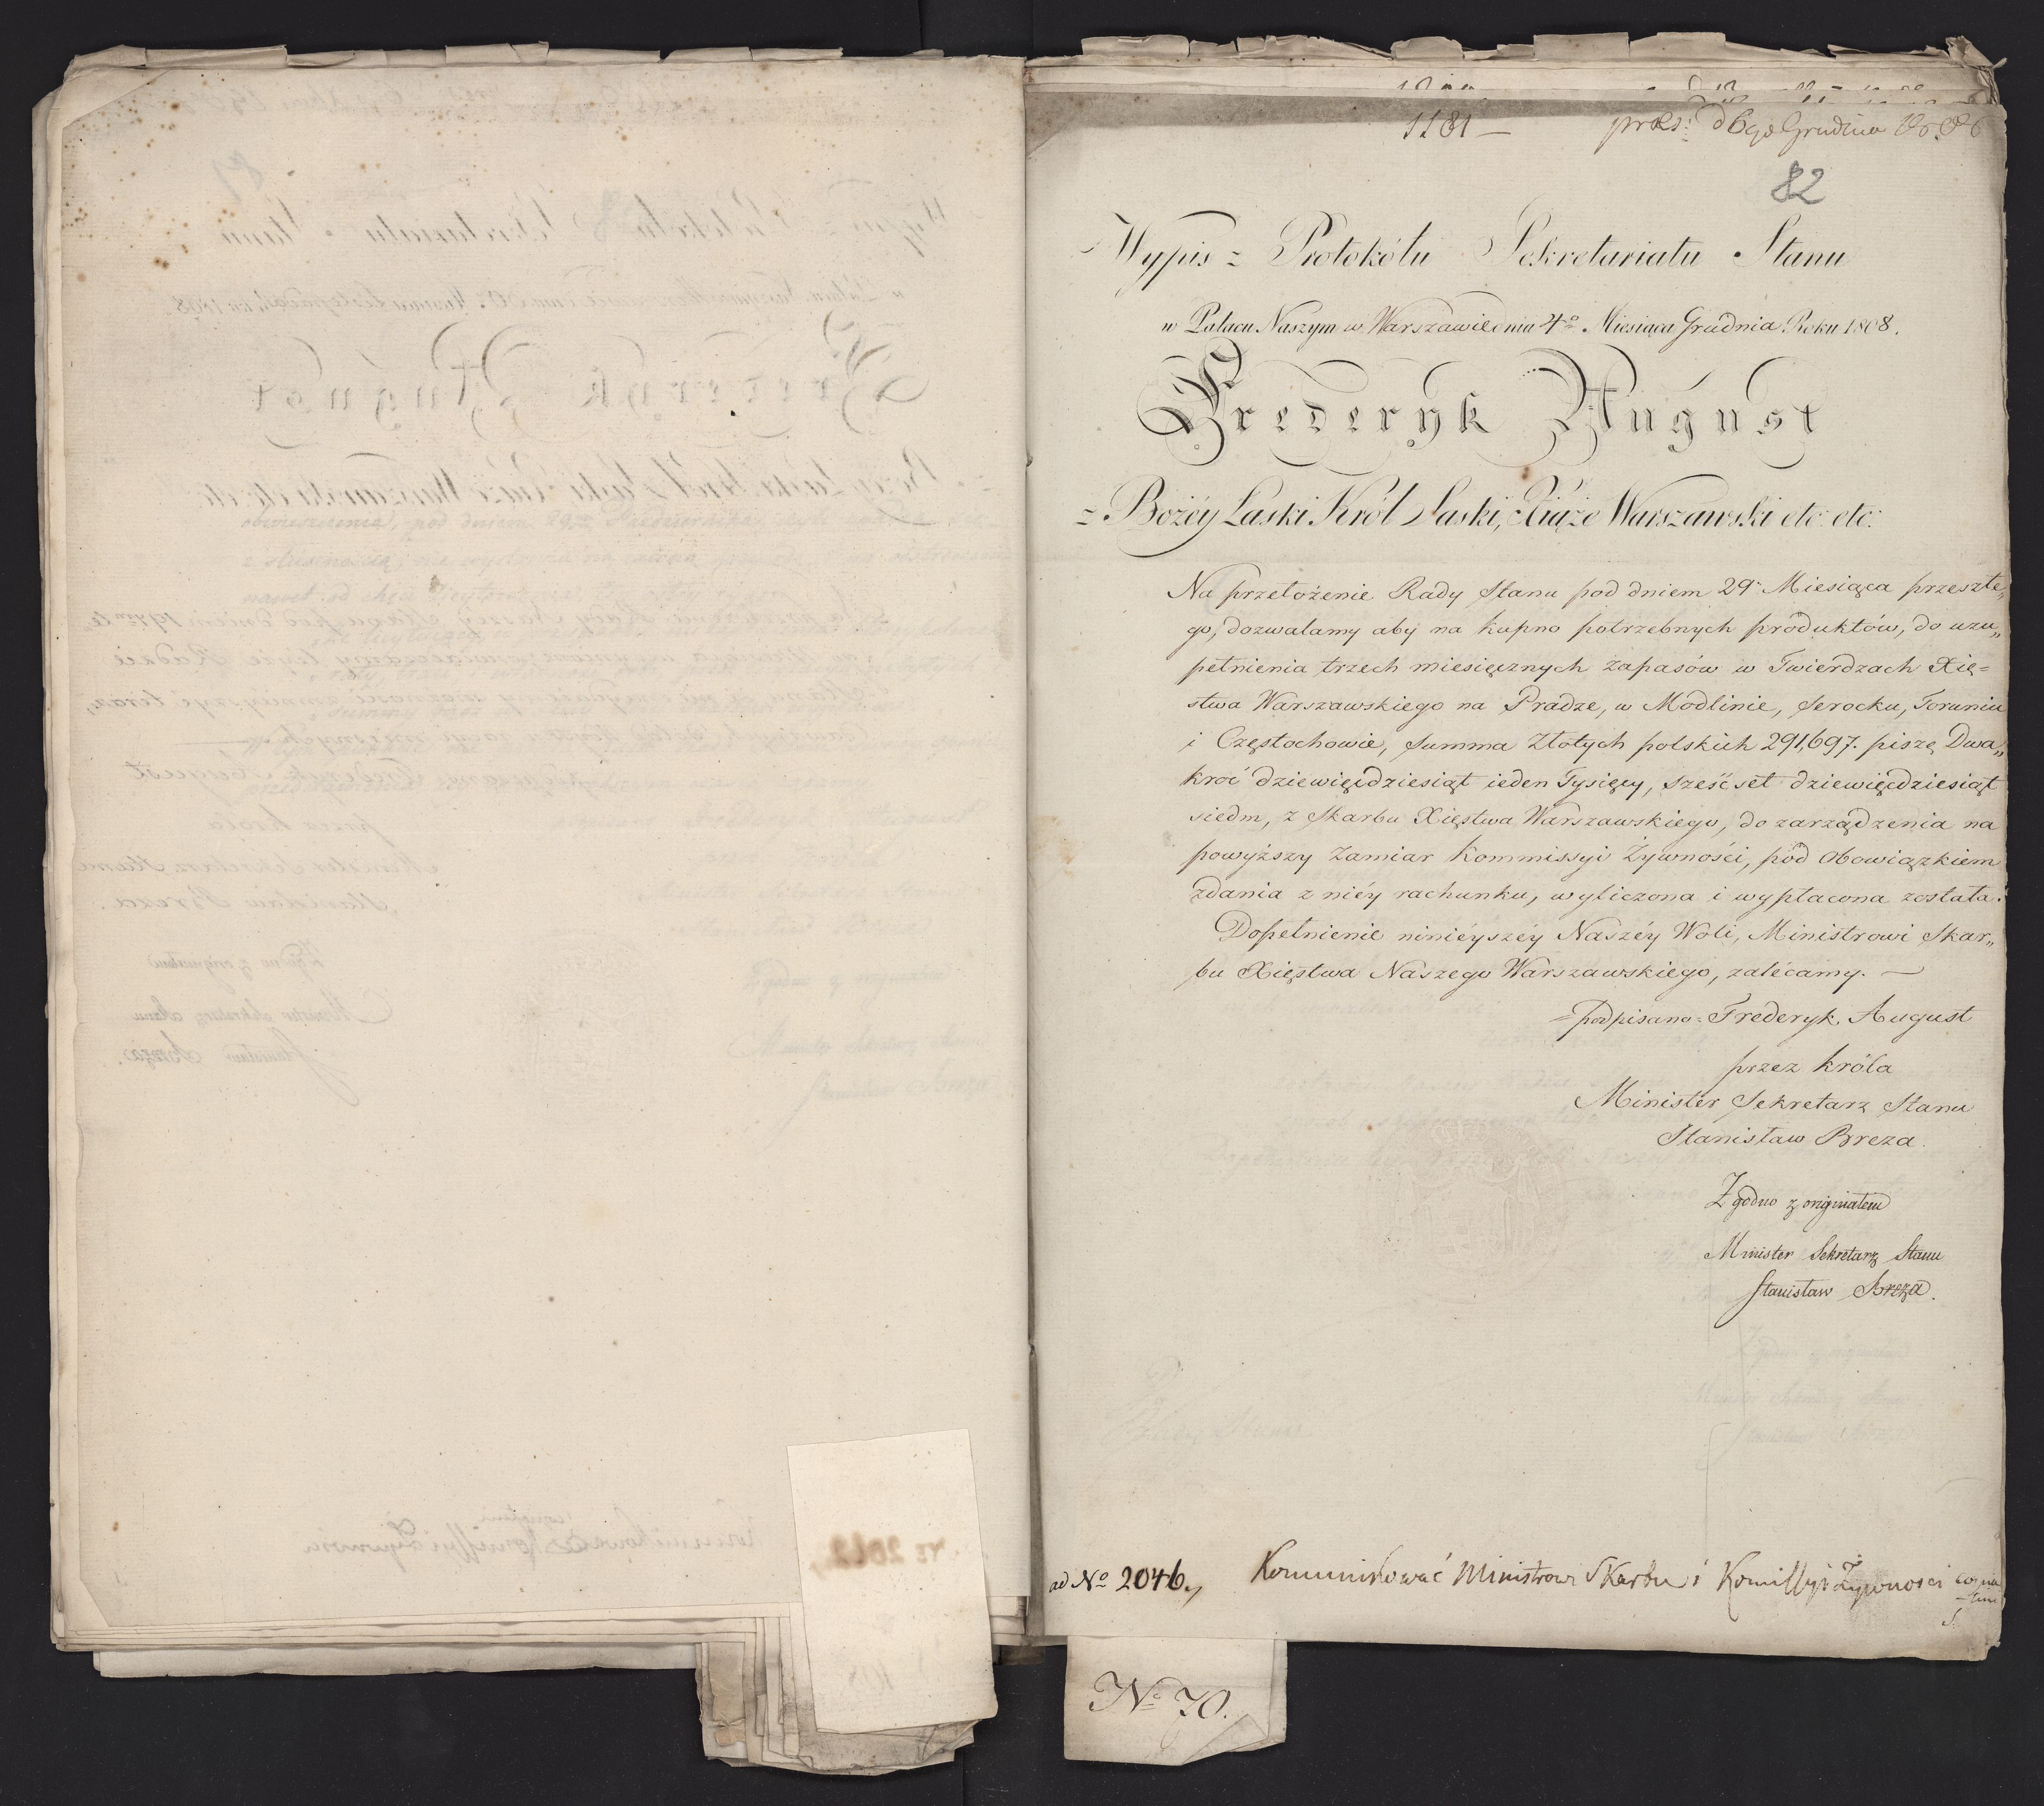 1181 —
praes: d 6go Grudnia
82
Wypis z Protokółu Sekretariatu Stanu
w Pałacu Naszym w Warszawie dnia 4o Miesiąca Grudnia Roku 1808.
Frederyk August
z Bożéy Łaski Król Saski, Xiąże Warszawski etc: etc:
Na przełożenie Rady Stanu pod dniem 29o Miesiąca przeszłe„
go, dozwalamy aby na kupno potrzebnych produktów, do uzu„
pełnienia trzech miesięcznych zapasów w Twierdzach Xię=
stwa Warszawskiego na Pradze, w Modlinie, Serocku, Toruniu
i Częstochowie, summa Złotych polskich 291,697. piszę Dwa„
kroć dziewięćdziesiąt ieden Tysięcy, sześćset dziewięćdziesiąt
siedm, z Skarbu Xięstwa Warszawskiego, do zarządzenia na
powyższy zamiar Kommissyi Żywności, pod obowiązkiem
zdania z niéy rachunku, wyliczona i wypłacona została.
Dopełnienie niniéyszéy Naszéy Woli, Ministrowi Skar„
bu Xięstwa Naszego Warszawskiego, zalécamy. —
=podpisano= Frederyk August
przez króla
Minister Sekretarz Stanu
Stanisław Breza.
Zgodno z originałem
Minister Sekretarz Stanu
Stanisław Breza.
ad No 2046,
Kommunikować Ministrowi Skarbu i Komissyi Żywności
No 70.